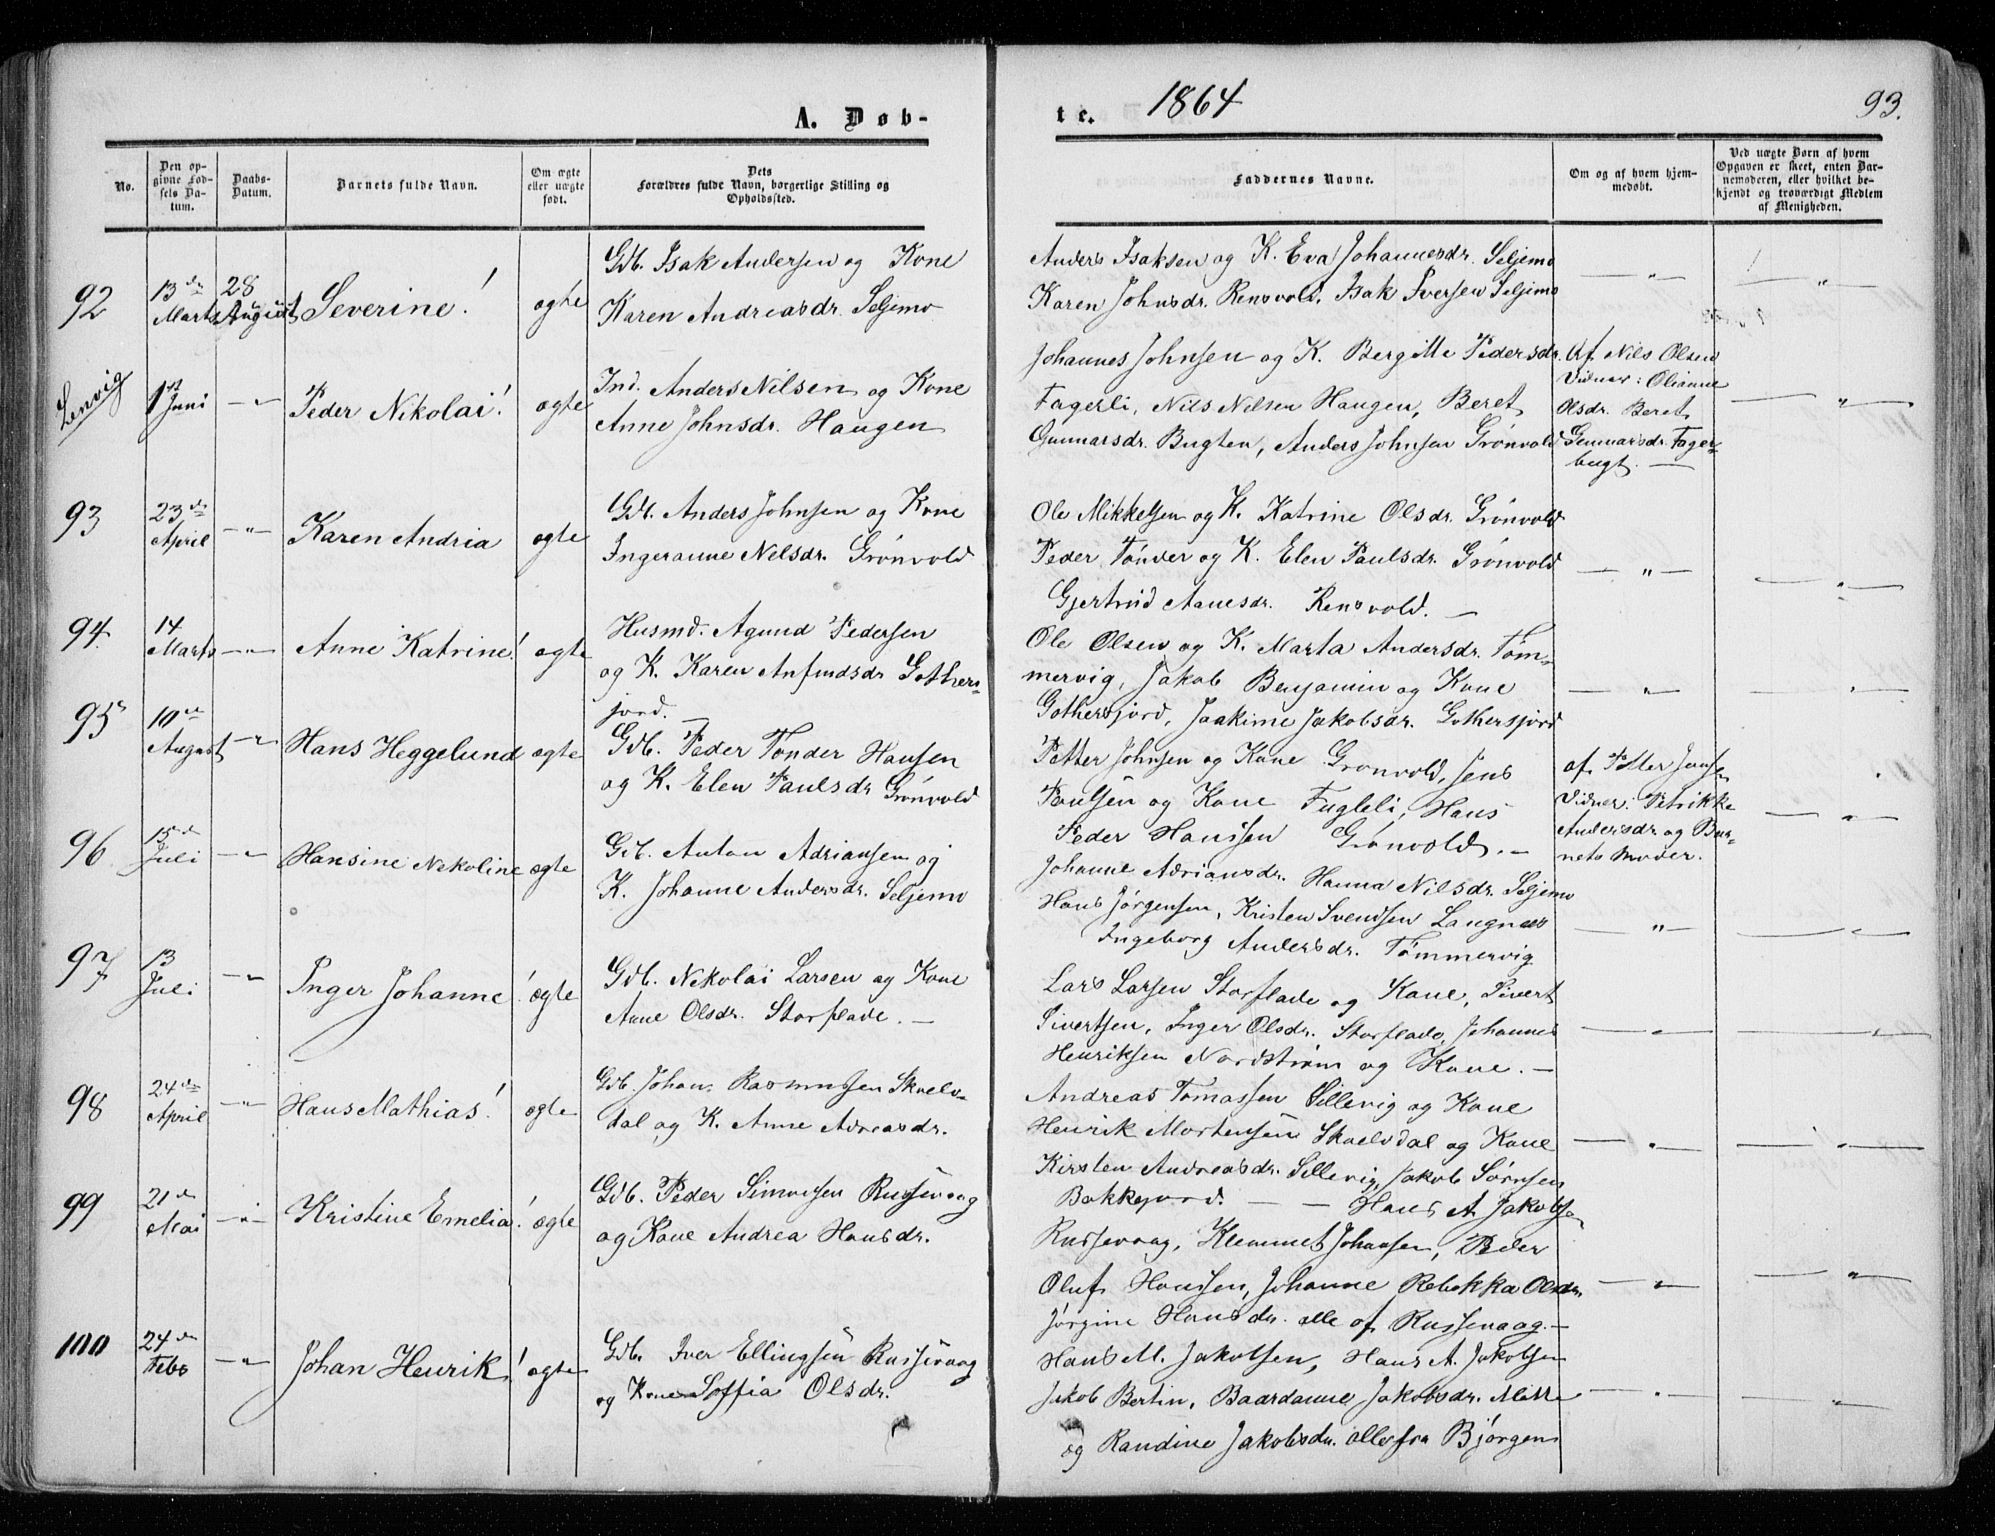 1864
93.
A. Døb-
te.
No.
Den op-
givne Fød-
sels Da-
tum.
Daabs-
Datum.
Barnets fulde Navn.
Om ægte
eller uægte
født.
Dets
Forældres fulde Navn, borgerlige Stilling og
Opholdssted.
Faddernes Navne.
Om og af hvem hjem-
medøbt.
Ved uægte Børn af hvem
Opgaven er skeet, enten Bar-
nemoderen, eller hvilket be-
kjendt og troværdigt Medlem
af Menigheden.
92
13de
Marts
28
August
Severine!
ægte
Gdb. Isak Andersen og Kone
Karen Andreasdr. Seljemo
Anders Isaksen og K. Eva Johannesdr. Seljemo
Karen Johnsdr. Rensvold, Isak Iversen Seljemo
— " —
"
Lenvig
1st
Juni
— " —
Peder Nikolai!
ægte
Ind. Anders Nilsen og Kone
Anne Johnsdr. Haugen
Johannes Johnsen og K. Bergitte Pedersdr.
Fagerli, Nils Nilsen Haugen, Beret
Gunnarsdr. Bugten, Anders Johnsen Grönvold
Af. Nils Olsen
Vidner: Olianne
Olsdr. Beret
Gunnarsdr. Fager-
bugt. —
— " —
93
23de
April
— " —
Karen Andria
ægte
Gdb. Anders Johnsen og Kone
Ingeranne Nilsdr. Grönvold
Ole Mikkelsen og K. Katrine Olsdr. Grönvold
Peder Tönder og K. Elen Paulsdr. Grönvold
Gjertrud Aanesdr. Rensvold. —
— " —
— " —
94.
14
Marts
— " —
Anne Katrine!
ægte
Husmd. Agund Pedersen
og K. Karen Anfindsdr Gothers-
jord. —
Ole Olsen og K. Marta Andersdr. Töm-
mervig, Jakob Benjamin og Kone
Gothersjord, Joakime Jakobsdr. Gothersjord
— " —
— " —
95
10de
August
— " —
Hans Heggelund
ægte
Gdb. Peder Tonder Hansen
og K. Elen Paulsdr Grönvold
Petter Johnsen og Kone Grønvold, Jens
Paulsen og Kone Fugleli, Hans
Peder Hanssen Grönvold. —
af Petter Jensen
Vidner: Petrikke
Andersdr. og Bar-
nets Moder.
— " —
96
15de
Juli
— " —
Hansine Nekoline
ægte
Gdb. Anton Adriansen og
K. Johanne Andersdr. Seljemo
Johanne Adriansdr. Hanna Nilsdr. Seljemo
Hans Jörgensen, Kristen Svendsen Langnæs
Ingeborg Andersdr. Tömmervig
— " —
— " —
97
13
Juli
— " —
Inger Johanne!
ægte
Gdb. Nekolai Larsen og Kone
Anne Olsdr. Storflade. —
Lars Larsen Storflade og Kone, Sivert
Sivertsen, Inger Olsdr. Storflade, Johannes
Henriksen Nordström og Kone. —
— " —
"
98
24de
April
— " —
Hans Mathias!
ægte
Gdb. Johan Rasmussen Skøelv-
dal og K. Anne Adreasdr.
Andreas Tomassen Sillevig og Kone
Henrik Mortensen Skøelvdal og Kone
Kirsten Andreasdr. Sillevig, Jakob Sörnsen
Bakkejord. —
— " —
— " —
99
21de
Mai
— " —
Kristine Emelia!
ægte
Gdb. Peder Simonsen Russevaag
og Kone Andrea Hansdr.
— Hans A. Jakobsen
Russevaag, Klemmet Johansen, Peder
Oluf Hanssen, Johanne Rebekka Olsdr.
Jörgine Hansdr. alle af Russevaag. —
— " —
— " —
100
24de
Febr
— " —
Johan Henrik!
ægte
Gdb. Iver Ellingsen Russevaag
og Kone Soffia Olsdr.
Hans M. Jakobsen, Hans A. Jakobsen
Jakob Bertin, Baardanne Jakobsdr. Mette
og Randine Jakobsdr. alle fra Bjorgen
— " —
— " —